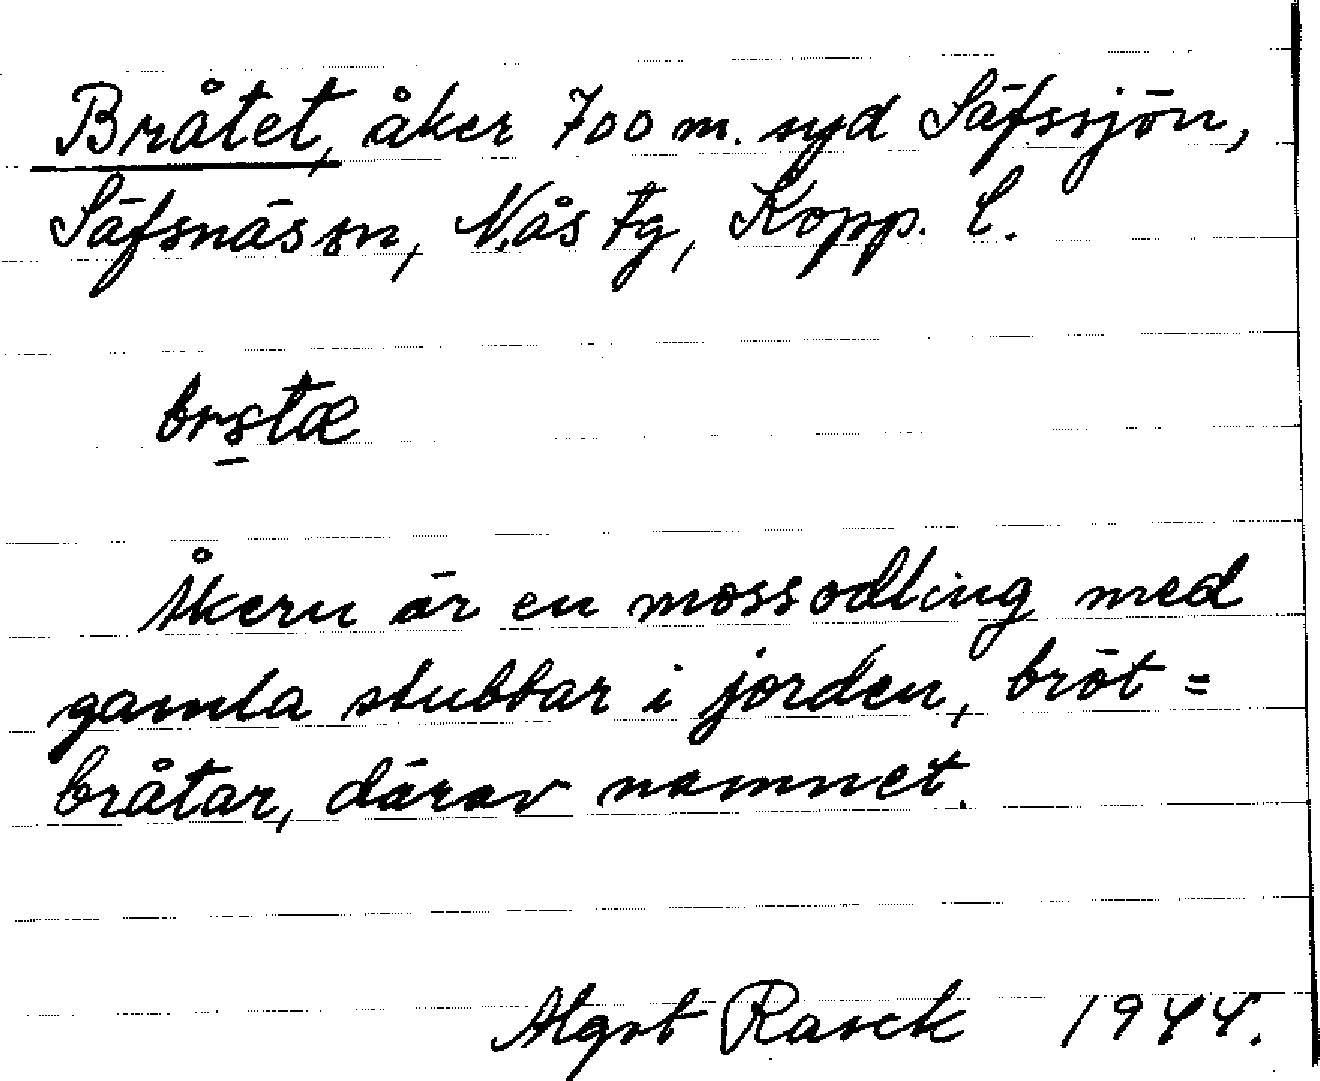 Bråtet, åker 700 m. syd Säfssjön,
Säfsnäs sn, Nås tg, Kopp. l.
Åkern är en mossodling med
gamla stubbar i jorden, bröt =
bråtar, därav namnet.
Algot Rasck 1944.